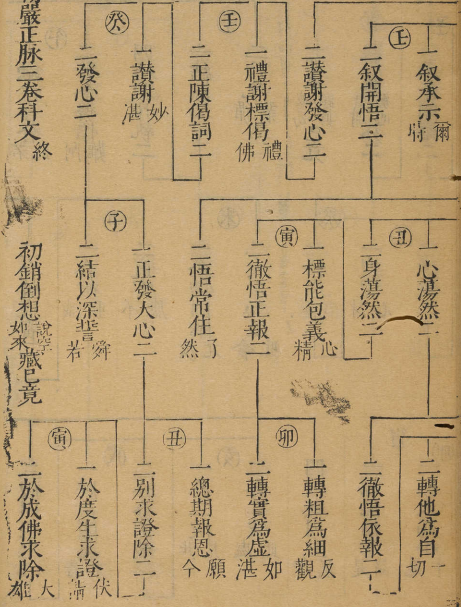 壬
一叙承示 爾時
二叙開悟二
二讚謝發心二
壬
一禮謝標偈 禮佛
二正陳偈詞二
一讚謝 妙湛
癸
二發心二
嚴正脉三卷科文 終
丑
一心蕩然二
二身蕩然二
寅
一標能包義 心精
二徹悟正報二
二悟常住 了然
子
一正發大心二
二結以深誓 舜若
初銷倒想說空如來藏已竟
二轉他為自 一切
二徹悟依報二
卯
一轉粗為細 反觀
二轉實為虛 如湛
丑
一總期報恩 願今
二別求證除二
寅
一於度生求證 伏請
二於成佛求除 大雄